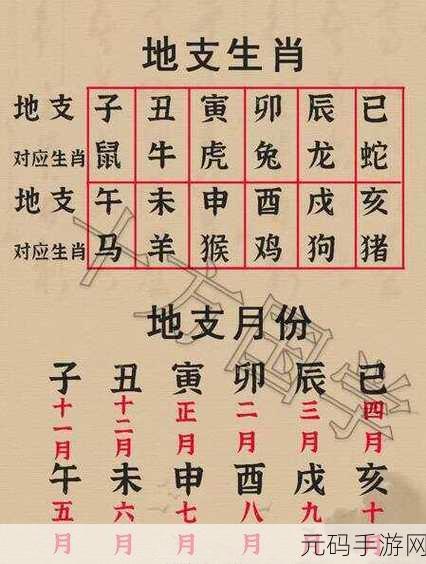 地支生肖
地支 子 丑 寅 卯 辰 己
对应生肖 鼠 牛 虎 兔 龙 蛇
地支 午 未 申 酉 戌 亥
对应生肖 马 羊 猴 鸡 狗 猪
地支月份
子 丑 寅 卯 辰 己
十一月 十二月 正月 二月 三月 四月
午 未 申 酉 戌 亥
五月 六月 七月 八月 九月 十月
十方国学
元码手游网